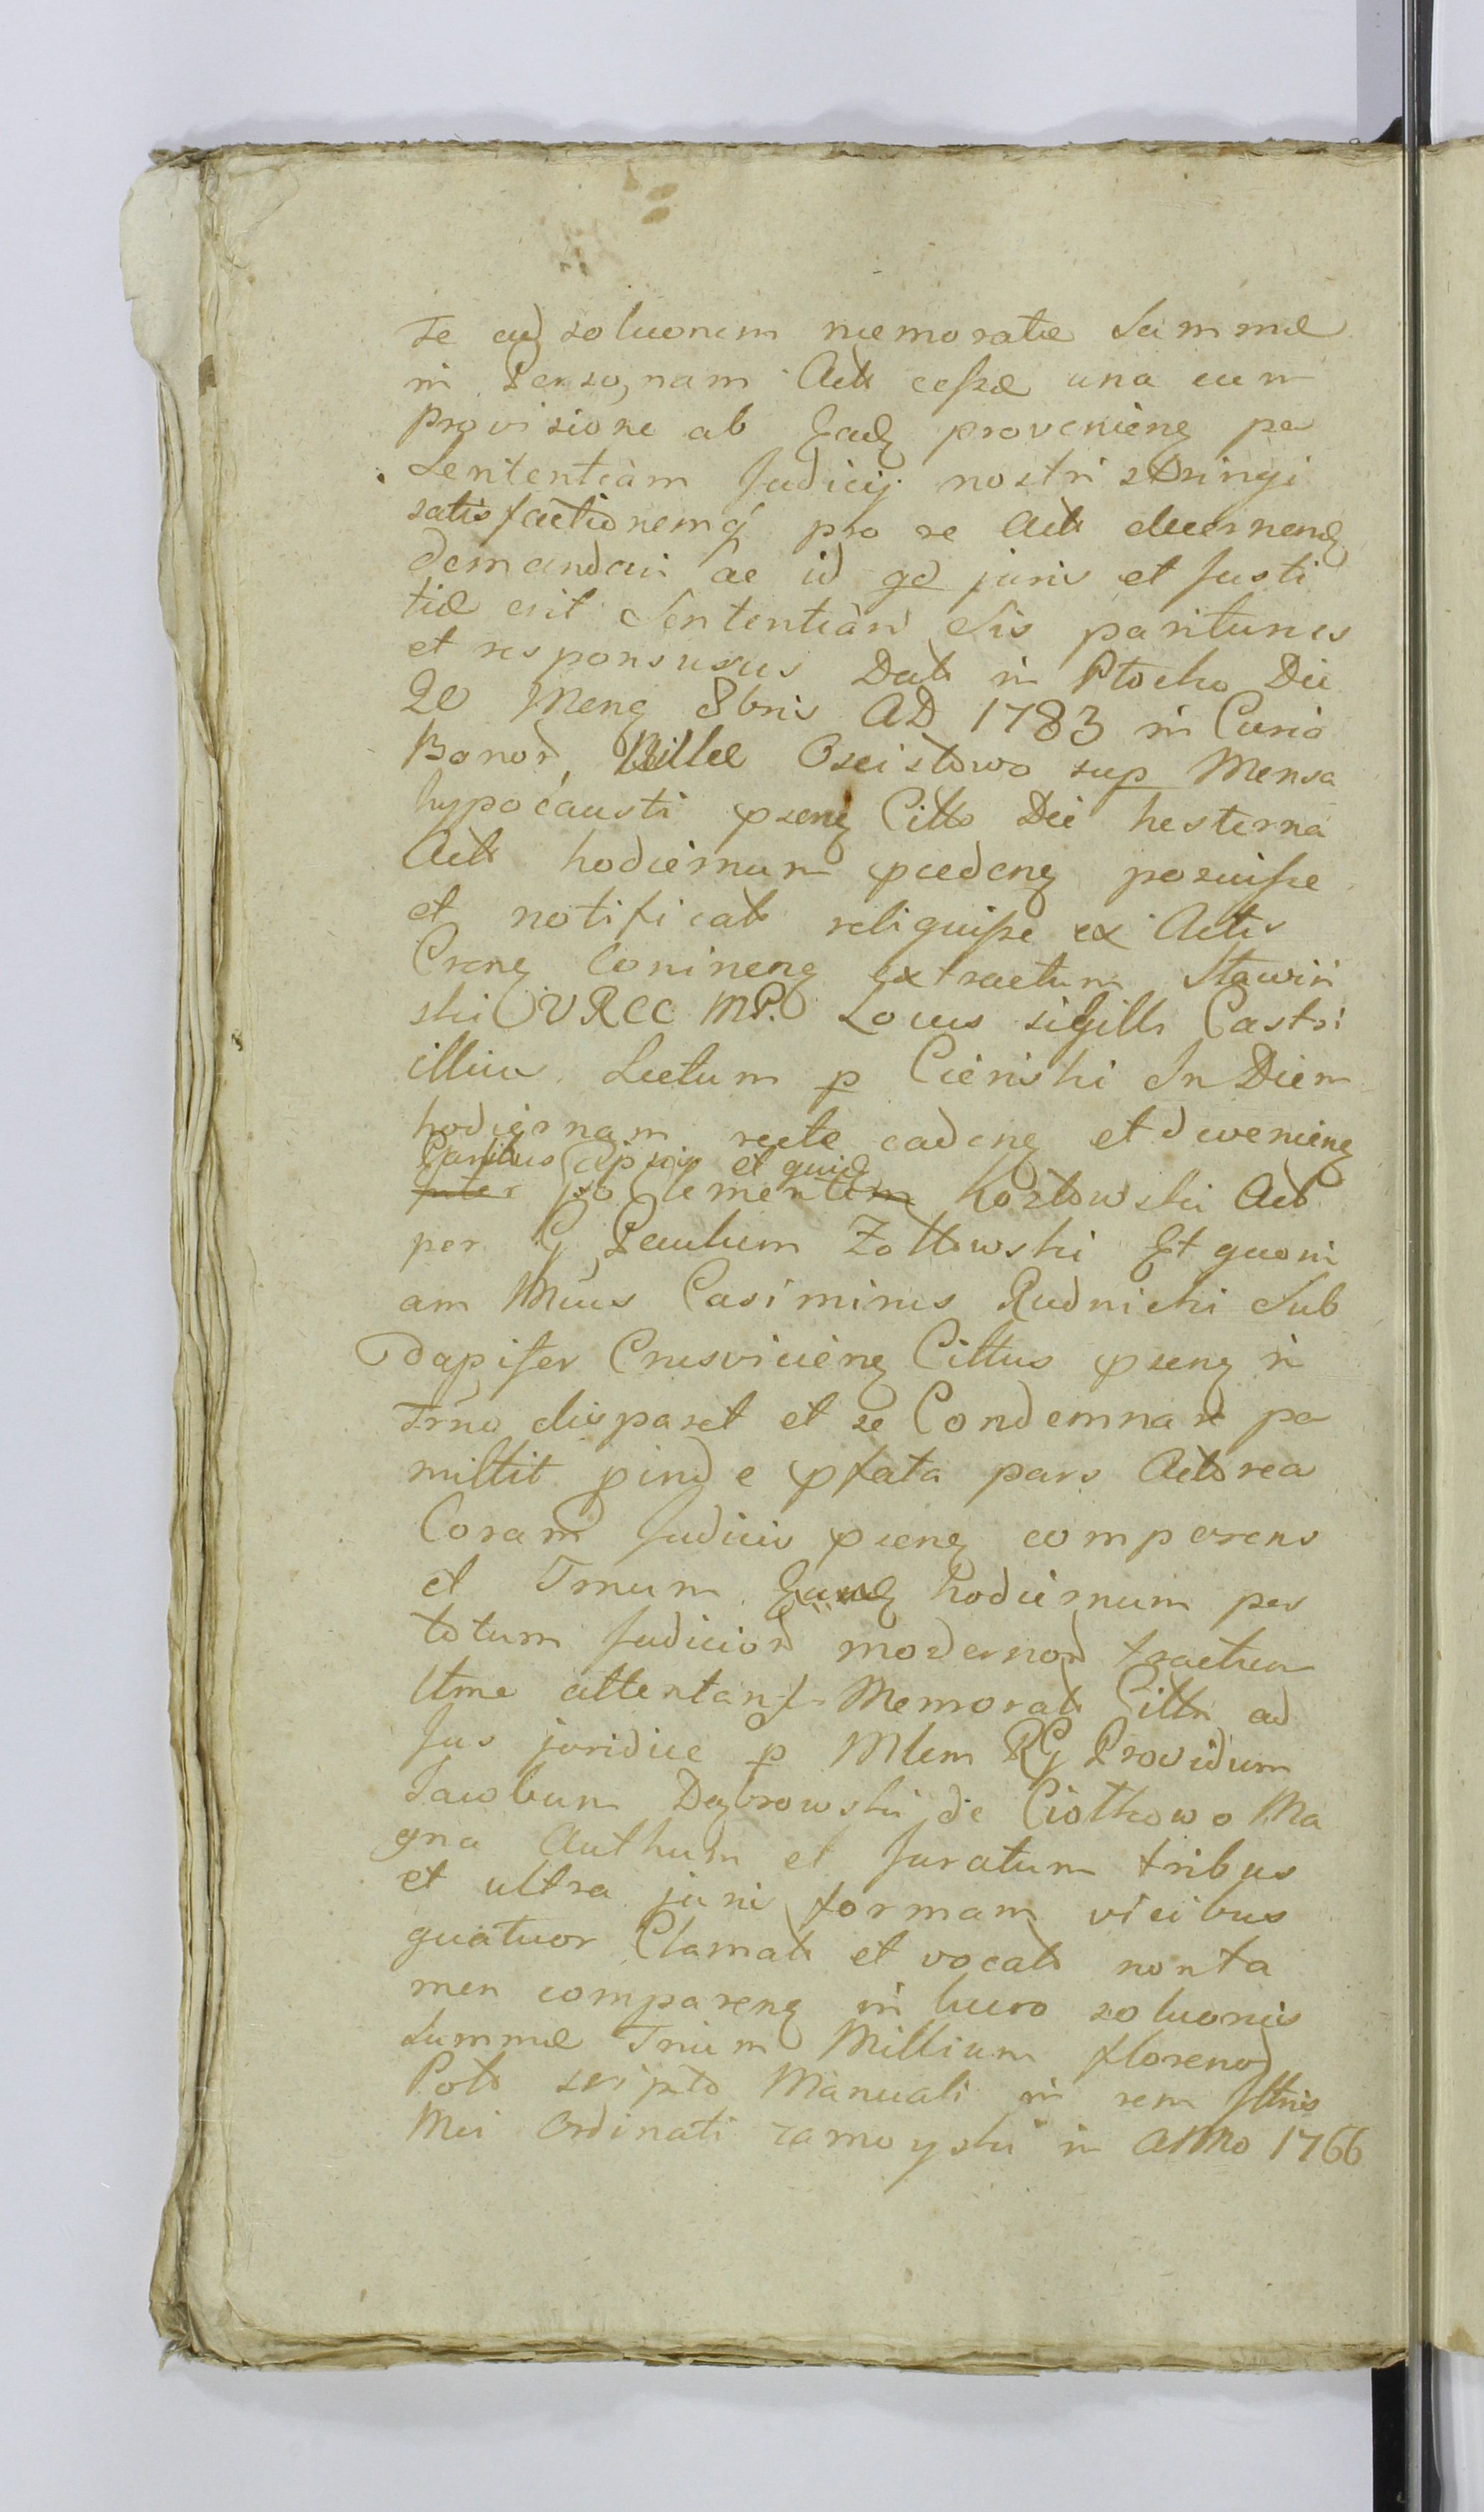 Te ad soluonem memoratæ Summæ
in Personam Acts cessæ una cum
provisione ab Eadq provenienq per
Sententiam Judicij nostri stringi
satisfactionemq́ pro se Acts decernenq
demandari ac id qd juris et Justi
tiæ erit Sententiam Sis pariturus
et responsurus Dats in Płocko Die
20 Menq 8bris AD 1783 in Curia
Bonor Villæ Oscisłowo sup Mensa
hypocausti psenq Citts Die hesterna
Acts hodiernum pcedenq posuisse
et notificats reliquisse ex Actis
Crenq Coninenq extractum Stawin
ski VRCC MP. Locus sigilli Castri
illius Lectum p Cienski In Diem
hodiernam recte cadenq et devenienq
Partibus et quid
Inter Clementem Kozłowski Act
per G Paulum Zołtowski Et quoni
am Mfcus Casimirus Rudnicki Sub
dapifer Crusvicienq Cittus psenq in
Trno disparet et se Condemnare per
mittit pinde pfata pars Actorea
Coram Judicio psenq comparens
et Trnum hodiernum per
totum Judicior modernor tractum
ltme attentans Memorats Cittn ad
Jus juridice p Mlem RG Providum
Jacobum Dąbrowski de Ciołkowo Ma
gna Authum et Juratum tribus
et ultra juris formam vicibus
quatuor Clamats et vocats non ta
men comparenq in lucro soluonis
Summæ Trium Millium florenor
Pols scripto Manuali in rem Illtris
Mci Ordinati Zamoyski in Anno 1766